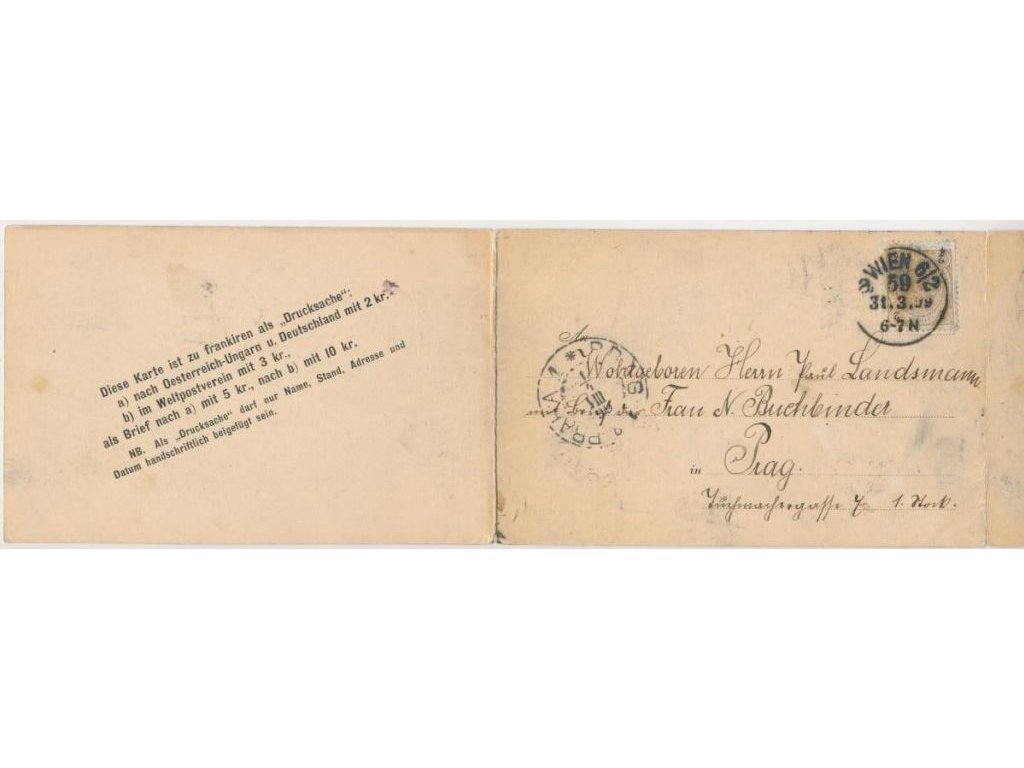 Diese Karte ist zu frankiren als „Drucksache":
a) nach Oesterreich-Ungarn u. Deutschland mit 2 kr.
b) im Weltpostverein mit 3 kr.,
als Brief nach a) mit 5 kr., nach b) mit 10 kr.
NB. Als „Drucksache" darf nur Name, Stand, Adresse und
Datum handschriftlich beigefügt sein.
WIEN 6/2
59
31.3.99
6-7N
PRAG 1
PRAHA 1
An
Wohlgeboren Herrn Paul Landsmann
Frau N. Buchbinder
in Prag.
Tuchmachergasse 7 1. Stock.